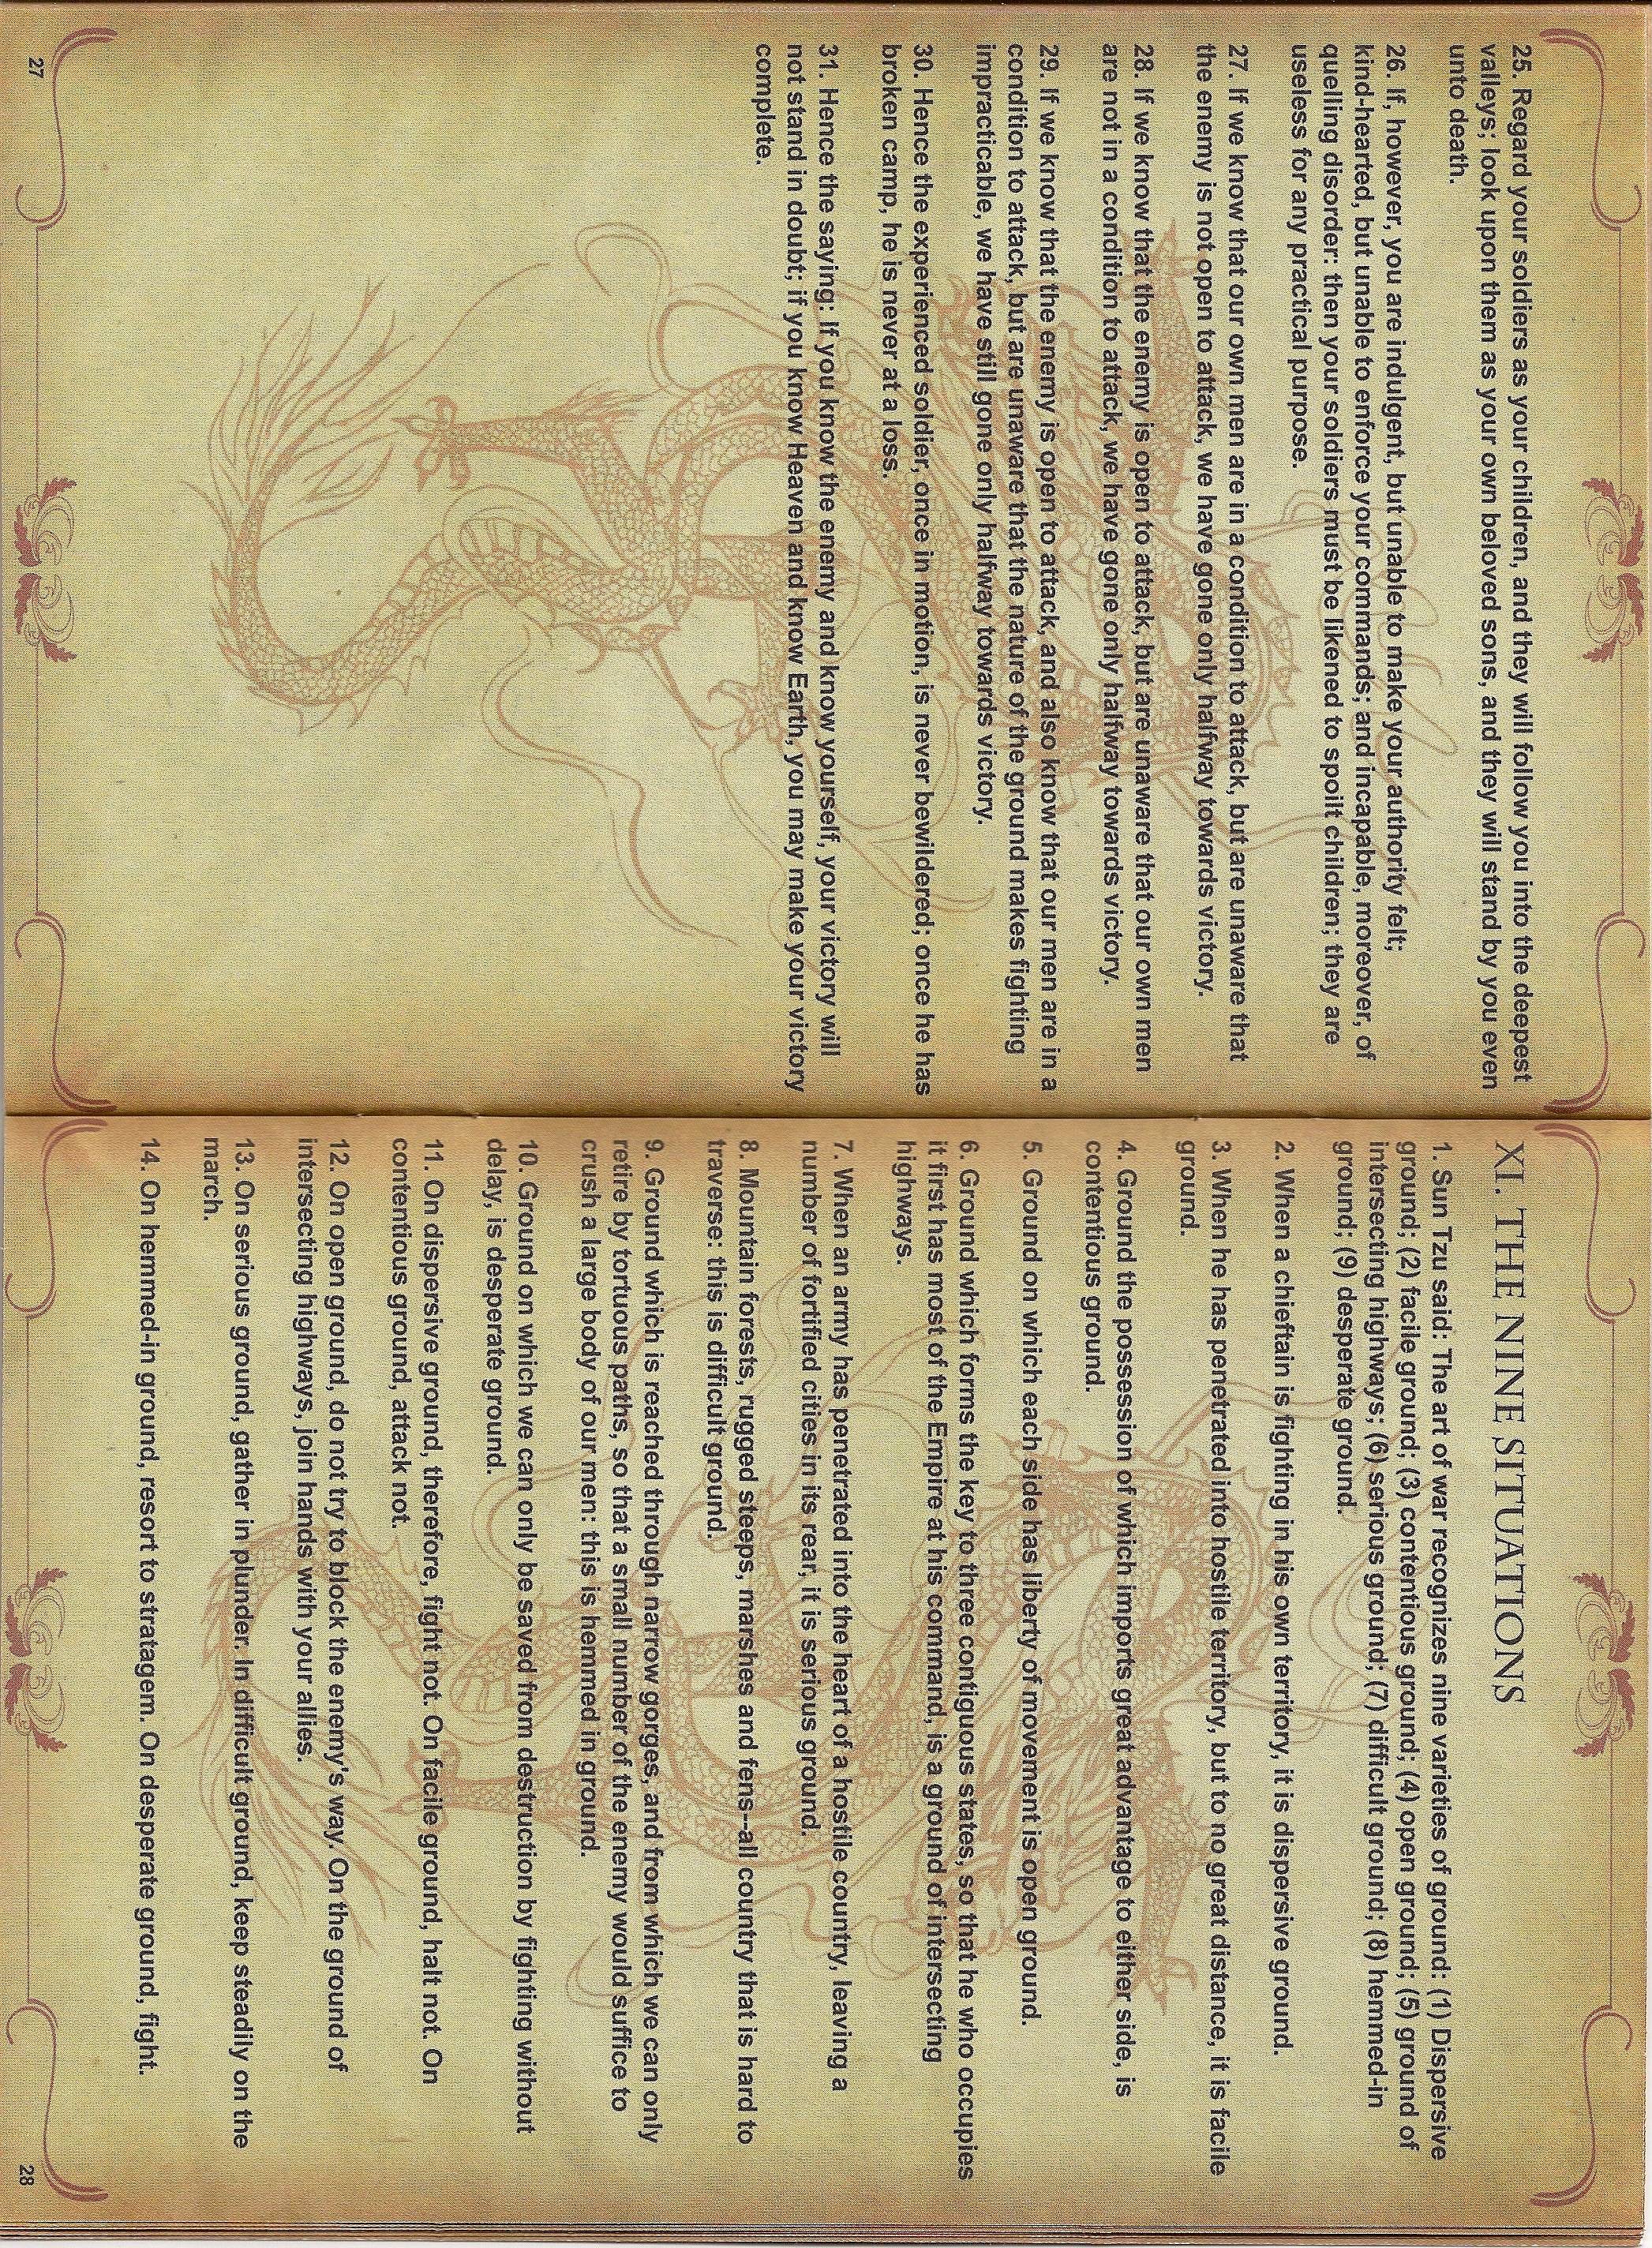 25. Regard your soldiers as your children, and they will follow you into the deepest
valleys; look upon them as your own beloved sons, and they will stand by you even
unto death.
26. If, however, you are indulgent, but unable to make your authority felt;
kind-hearted, but unable to enforce your commands; and incapable, moreover, of
quelling disorder: then your soldiers must be likened to spoilt children; they are
useless for any practical purpose.
27. If we know that our own men are in a condition to attack, but are unaware that
the enemy is not open to attack, we have gone only halfway towards victory.
28. If we know that the enemy is open to attack, but are unaware that our own men
are not in a condition to attack, we have gone only halfway towards victory.
29. If we know that the enemy is open to attack, and also know that our men are in a
condition to attack, but are unaware that the nature of the ground makes fighting
impracticable, we have still gone only halfway towards victory.
30. Hence the experienced soldier, once in motion, is never bewildered; once he has
broken camp, he is never at a loss.
31. Hence the saying: If you know the enemy and know yourself, your victory will
not stand in doubt; if you know Heaven and know Earth, you may make your victory
complete.
27
XI. THE NINE SITUATIONS
1. Sun Tzu said: The art of war recognizes nine varieties of ground: (1) Dispersive
ground; (2) facile ground; (3) contentious ground; (4) open ground; (5) ground of
intersecting highways; (6) serious ground; (7) difficult ground; (8) hemmed-in
ground; (9) desperate ground.
2. When a chieftain is fighting in his own territory, it is dispersive ground.
3. When he has penetrated into hostile territory, but to no great distance, it is facile
ground.
4. Ground the possession of which imports great advantage to either side, is
contentious ground.
5. Ground on which each side has liberty of movement is open ground.
6. Ground which forms the key to three contiguous states, so that he who occupies
it first has most of the Empire at his command, is a ground of intersecting
highways.
7. When an army has penetrated into the heart of a hostile country, leaving a
number of fortified cities in its rear, it is serious ground.
8. Mountain forests, rugged steeps, marshes and fens--all country that is hard to
traverse: this is difficult ground.
9. Ground which is reached through narrow gorges, and from which we can only
retire by tortuous paths, so that a small number of the enemy would suffice to
crush a large body of our men: this is hemmed in ground.
10. Ground on which we can only be saved from destruction by fighting without
delay, is desperate ground.
11. On dispersive ground, therefore, fight not. On facile ground, halt not. On
contentious ground, attack not.
12. On open ground, do not try to block the enemy's way. On the ground of
intersecting highways, join hands with your allies.
13. On serious ground, gather in plunder. In difficult ground, keep steadily on the
march.
14. On hemmed-in ground, resort to stratagem. On desperate ground, fight.
28